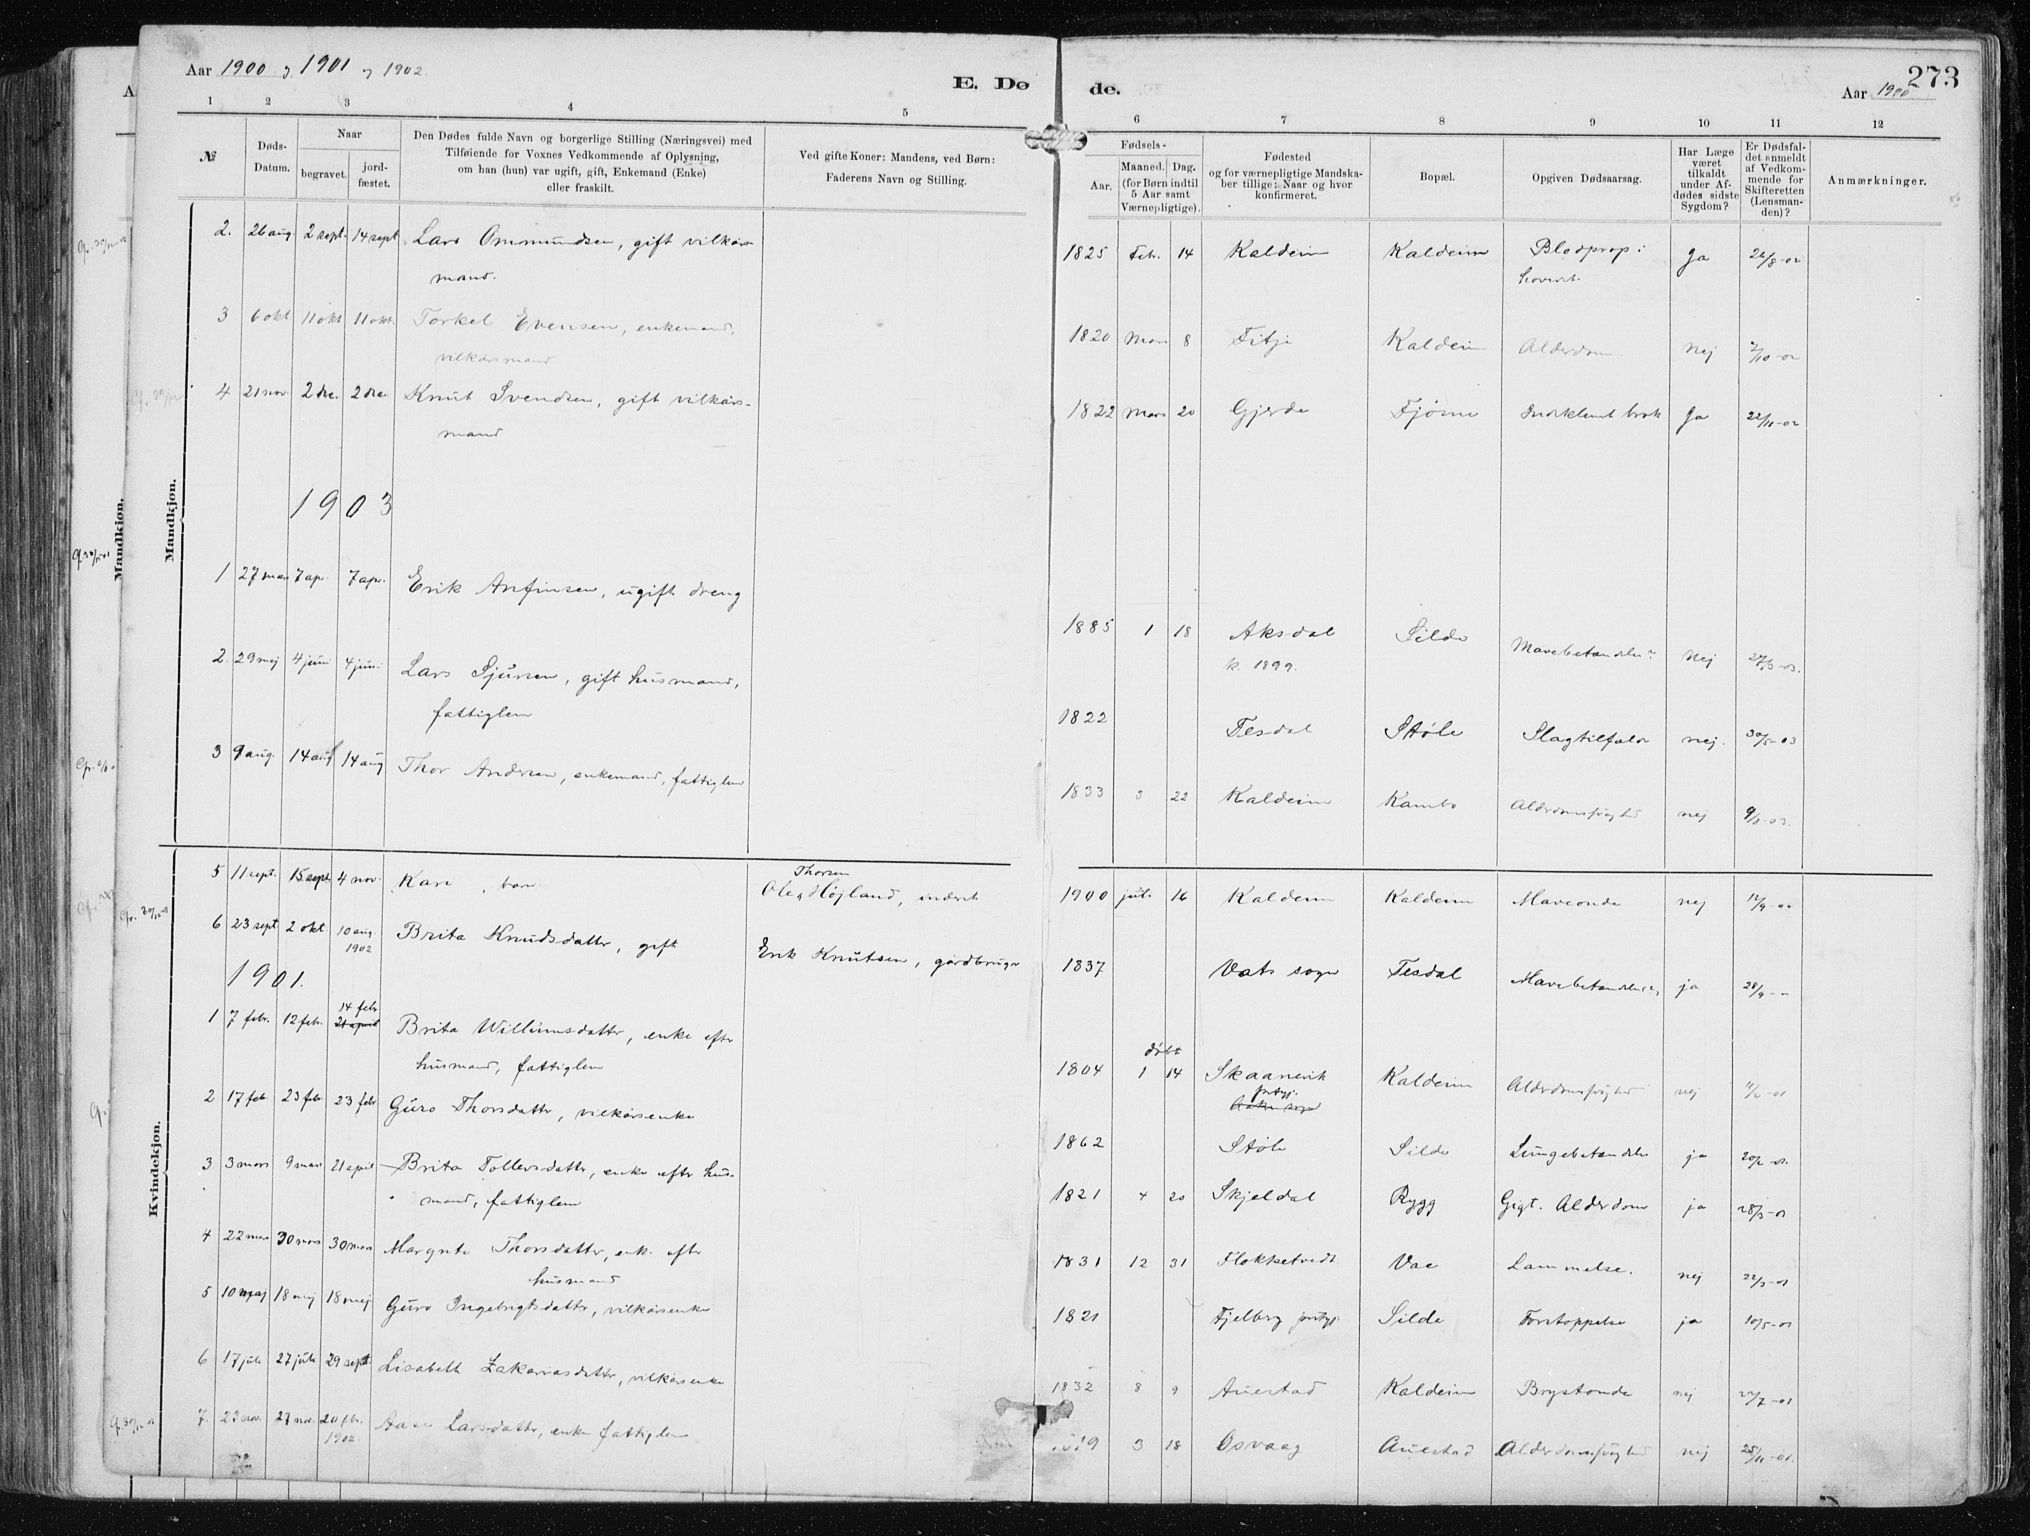 Aar 1900 og 1901 og 1902.
E. Dø
de.
273
Aar 1900
1 2 3 4 5
6 7 8 9 10 11 12
№
Døds-
Datum.
Naar
begravet.
jord-
fæstet.
Den Dødes fulde Navn og borgerlige Stilling (Næringsvei) med
Tilføiende for Voxnes Vedkommende af Oplysning,
om han (hun) var ugift, gift, Enkemand (Enke)
eller fraskilt.
Ved gifte Koner: Mandens, ved Børn:
Faderens Navn og Stilling.
Fødsels-
Aar.
Maaned. Dag.
(for Børn indtil
5 Aar samt
Værnepligtige).
Fødested
og for værnepligtige Mandska-
ber tillige: Naar og hvor
konfirmeret.
Bopæl.
Opgiven Dødsaarsag.
Har Læge
været
tilkaldt
under Af-
dødes sidste
Sygdom?
Er Dødsfal-
det anmeldt
af Vedkom-
mende for
Skifteretten
(Lensman-
den)?
Anmærkninger.
Mandkjøn.
Mandkjøn.
2. 26 aug. 2 sept. 14 sept Lars Ommundsen, gift vilkårs-
mand.
1825 Feb. 14 Kaldeim Kaldeim Blodprop i
hovedet.
Ja 26/8-02
3 6 okt 11 okt 11 okt. Torkel Evensen, enkemand,
vilkårsmand
1820 Mars 8 Fitje Kaldeim Alderdom. Nej 7/10-02
4 21 nov. 2 dec. 2 dec. Knut Svendsen, gift vilkårs-
mand
1822 Mars 20 Gjerde Fjøsne Indeklemt brok Ja 22/11-02
1903
1 27 mars 7 apr. 7 apr. Erik Anfinsen, ugift dreng
1885 1 18 Aksdal Silde Mavebetændelse Nej 27/3-03.
k. 1899.
2. 29 mej 4 juni 4 juni Lars Sjursen, gift husmand,
fattiglem
1822 Tesdal Støle Slagtilfælde nej. 30/5-03
3 9 aug. 14 aug 14 aug Thor Andersen, enkemand, fattiglem
1833 3 22 Kaldeim Kambo Alderdomssvaghed nej 9/8-03.
Kvindekjøn.
5 11 sept. 15 sept. 4 nov. Kari, barn
Thorsen
Ole Højland, inderst
1900 juli 16 Kaldeim Kaldeim Maveonde nej 12/9-00
6 23 sept 2 okt 10 aug.
1902
Brita Knudsdatter, gift
Erik Knutsen, gårdbruger
1837 Vats sogn Tesdal Mavebetændelse ja 28/9--
1901.
1 7 febr. 12 febr. 14 febr
21 april
Brita Willumsdatter, enke efter
husmand, fattiglem
døbt
1804 1 14 Skaanevik
prstgj.
Kaldeim Alderdomssvaghed nej
2 17 feb 23 feb 23 febr Guro Thorsdatter, vilkårsenke
1862 Støle Silde Lungebetændelse ja 20/2-01.
3 3 mars 9 mars 21 april Brita Tollevsdatter, enke efter hus-
mand, fattiglem
1821 4 20 Skjeldal Rygg Gigt. Alderdom ja 28/3-01
4 22 mars 30 mars 30 mars Margrete Thorsdatter, enke efter
husmand
1831 12 31 Flokketvedt Vae Lammelse. nej 22/3-01
5 10 maj 18 mej 18 mej Guro Ingebrigtsdatter, vilkårsenke
1821 Fjelberg prstgj. Silde Forstoppelse ja 10/5-01
6 17 juli 27 juli 29 sept. Lisabeth Zakariasdatter, vilkårsenke
1832 8 9 Auestad Kaldeim Brystonde nej 22/7-01
7. 23 nov. 27 nov. 20 fbr.
1902
Aase Larsdatter, enke fattiglem
1819 3 18 Osvaag Auestad Alderdomssvaghed nej 25/11-01.